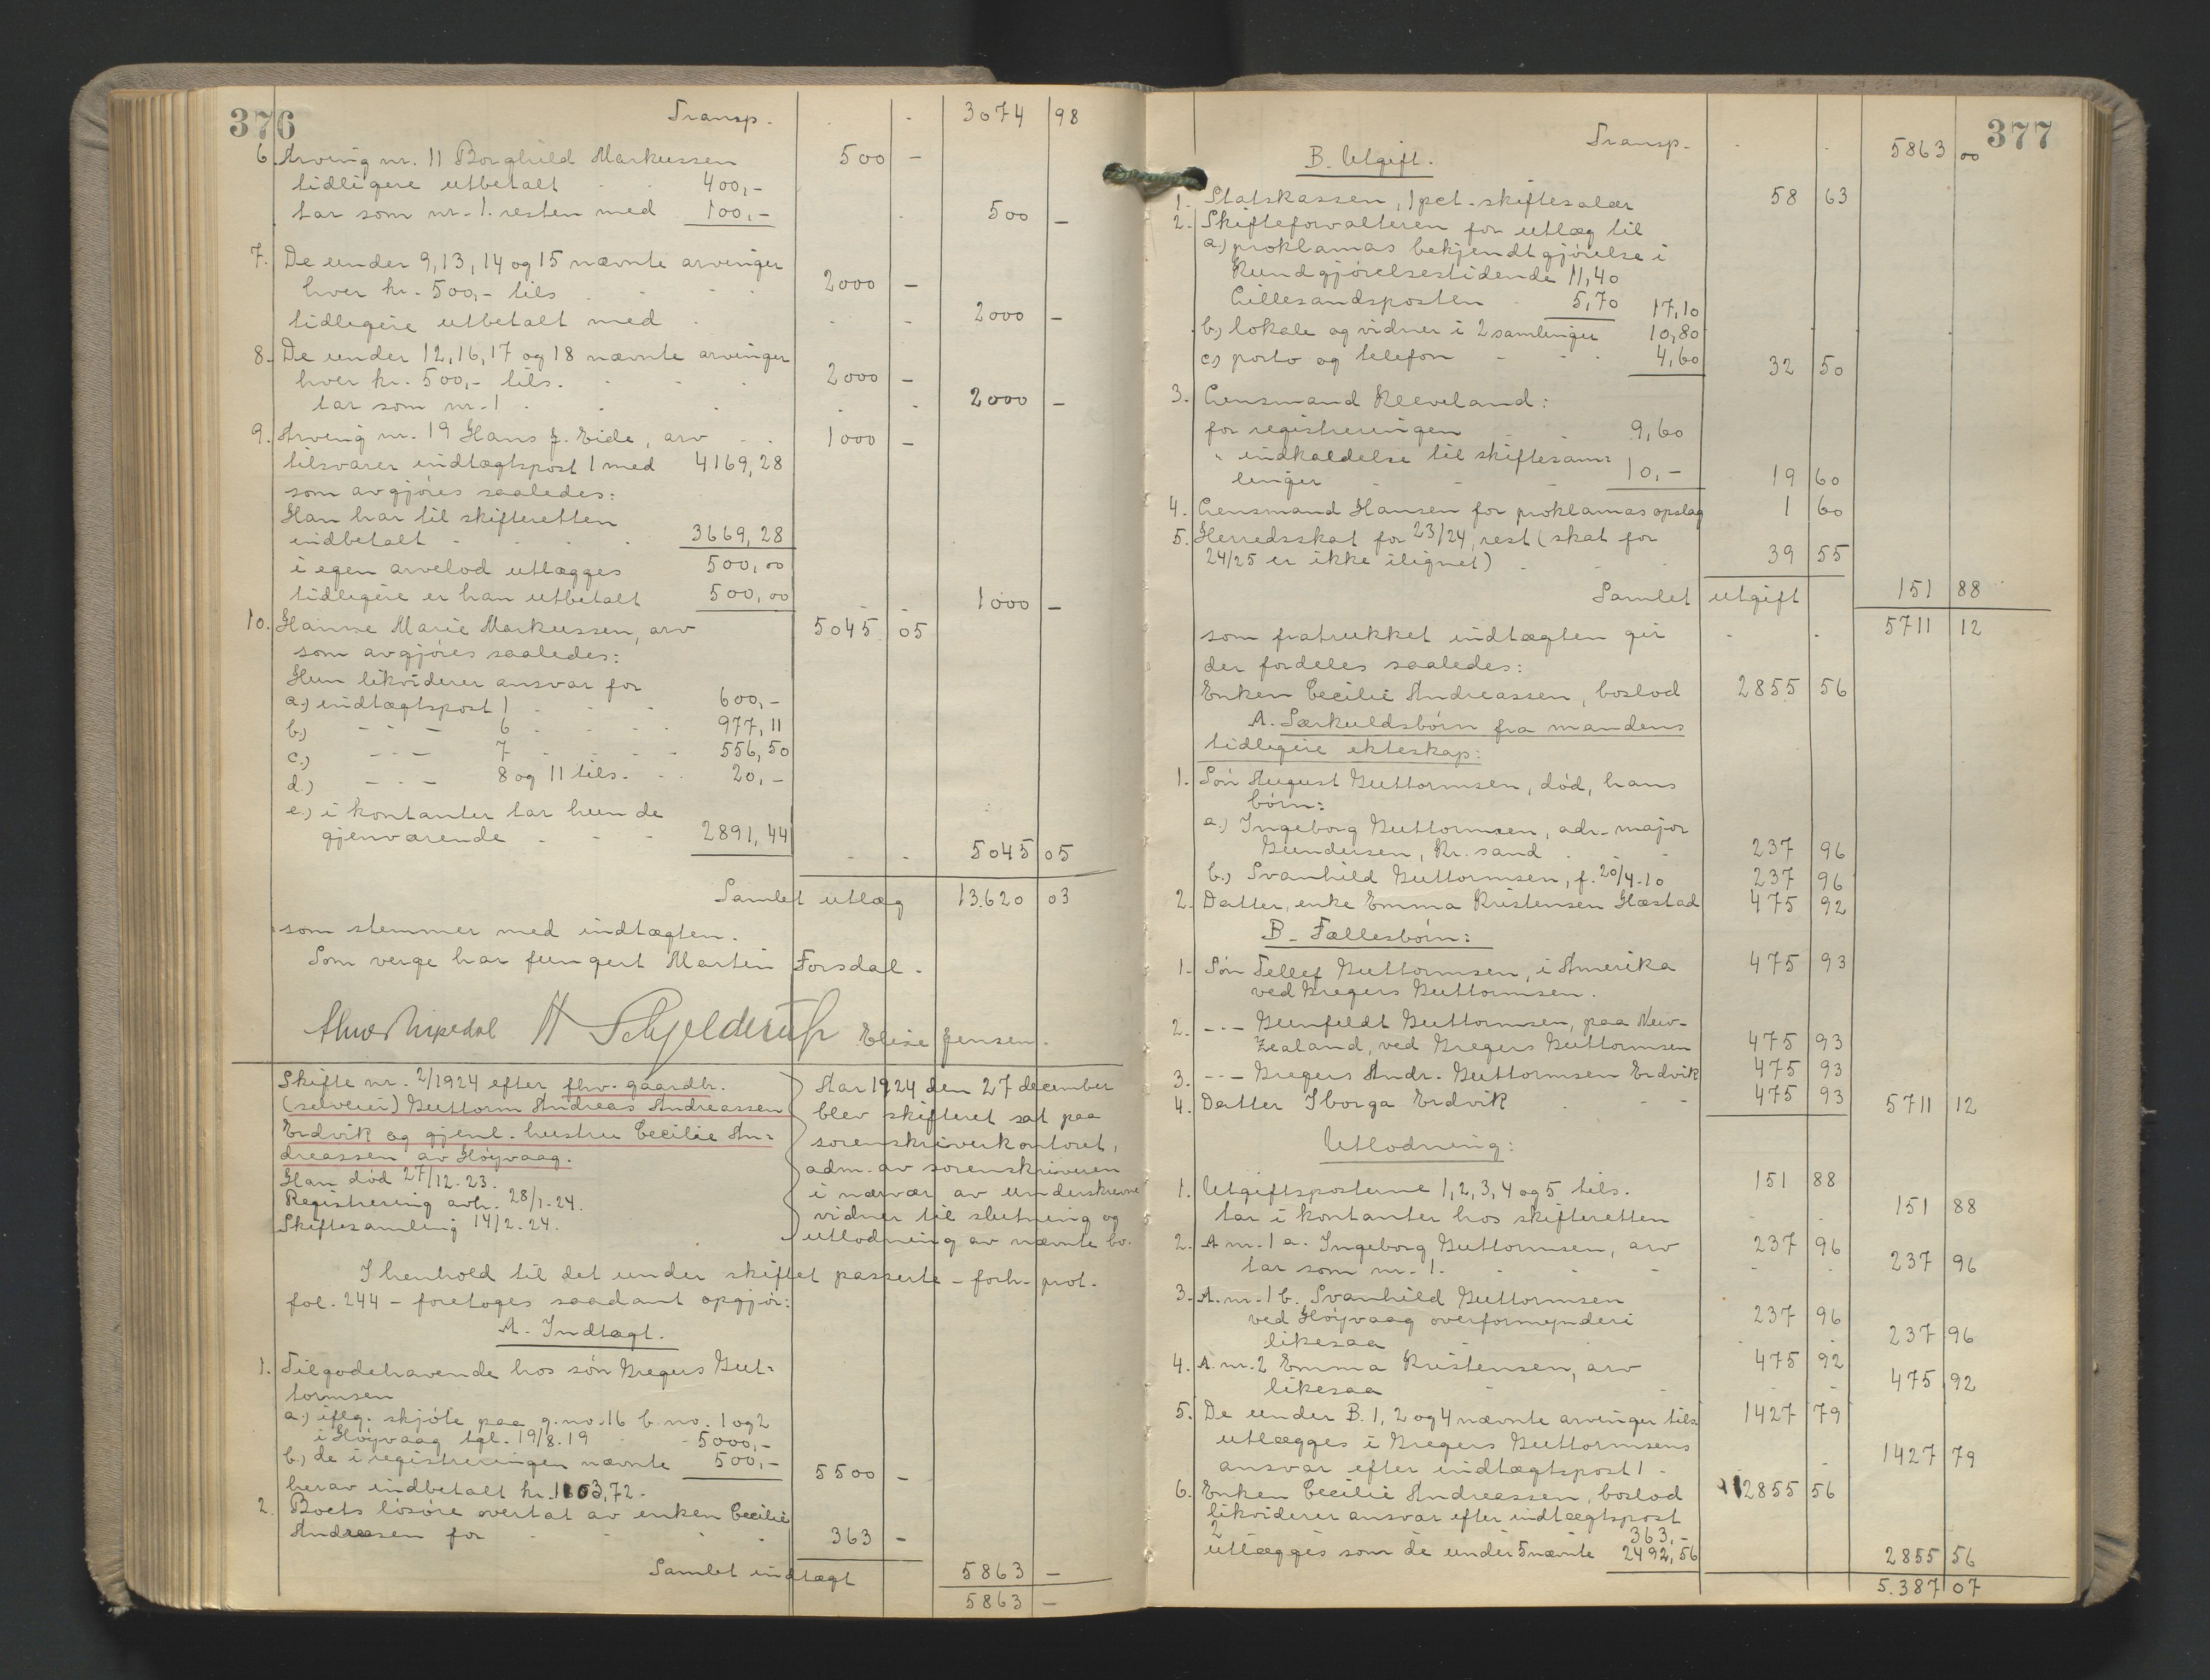 376
Transp. 3074 98
6. Arving nr. 11 Borghild Markussen 500 -
tidligere utbetalt 400,-
tar som nr. 1. resten med 100,- 500 -
7. De under 9, 13, 14 og 15 nævnte arvinger
hver kr. 500,- tils. 2000 -
tidligere utbetalt med 2000 -
8. De under 12, 16, 17 og 18 nævnte arvinger
hver kr. 500,- tils. 2000 -
tar som nr. 1 2000 -
9. Arving nr. 19 Hans J. Eide, arv 1000 -
tilsvarer indtægtspost 1 med 4169,28
som avgjøres saaledes:
Han har til skifteretten
indbetalt 3669,28
i egen arvelod utlægges 500,00
tidligere er han utbetalt 500,00 1000 -
10. Hanne Marie Markussen, arv 5045 05
som avgjøres saaledes:
Hun likviderer ansvar for
a.) indtægtspost 1 600,-
b.) - - - 6 977,11
c.) - - - 7 556,50
d.) - - - 8 og 11 tils. 20,-
e.) i kontanter tar hun de
gjenværende 2891,44 5045 05
Samlet utlæg 13.620 03
som stemmer med indtægten.
Som verge har fungert Martin Forsdal.
Schjelderup Elise Jensen.
Skifte nr. 2/1924 efter fhv. gaardbr.
(selveier) Guttorm Andreas Andreassen
Erdvik og gjenl. hustru Cecilie An=
dreassen av Høyvaag.
Han død 27/12-23.
Registrering avh. 28/1-24.
Skiftesamling 14/2-24.
Aar 1924 den 27 december
blev skifteret sat paa
sorenskriverkontoret,
adm. av sorenskriveren
i nærvær av underskrevne
vidner til slutning og
utlodning av nævnte bo.
I henhold til det under skiftet passerte - forh. prot.
fol. 244 - foretoges saadant opgjør:
A. Indtægt.
1. Tilgodehavende hos søn Gregers Gut=
tormsen
a.) iflg. skjøte paa g.no. 16 b.no. 1 og 2
i Høyvaag tgl. 19/8.19 5000,-
b.) de i registreringen nævnte 500,- 5500 -
herav indbetalt kr. 1103,72.
2. Boets løsøre overtat av enken Cecilie
Andreassen for 363 -
Samlet indtægt 5863 -
5863 -
377
Transp. 5863 00
B. Utgift.
1. Statskassen, 1 pct. skiftesalær 58 63
2. Skifteforvalteren for utlæg til
a.) proklamas bekjendtgjørelse i
Kundgjørelsestidende 11,40
Lillesandsposten 5,70 17,10
b.) lokale og vidner i 2 samlinger 10,80
c.) porto og telefon 4,60 32 50
3. Lensmand Kleveland:
for registreringen 9,60
" indkaldelse til skiftesam=
linger 10,- 19 60
4. Lensmand Hansen for proklamas opslag 1 60
5. Herredsskat for 23/24, rest (skat for
24/25 er ikke ilignet) 39 55
Samlet utgift 151 88
som fratrukket indtægten gir 5711 12
der fordeles saaledes:
Enken Cecilie Andreassen, boslod 2855 56
A. Særkuldsbørn fra mandens
tidligere ekteskap:
1. Søn August Guttormsen, død, hans
børn:
a.) Ingeborg Guttormsen, adr. major
Gundersen, Kr.sand 237 96
b.) Svanhild Guttormsen, f. 20/4-10 237 96
2. Datter, enke Emma Kristensen Hæstad 475 92
B. Fællesbørn:
1. Søn Tellef Guttormsen, i Amerika 475 93
ved Gregers Guttormsen.
2. - - - Gunfeldt Guttormsen, paa New-
Zealand, ved Gregers Guttormsen 475 93
3. - - - Gregers Andr. Guttormsen Erdvik 475 93
4. Datter Iborga Erdvik 475 93 5711 12
Utlodning:
1. Utgiftsposterne 1, 2, 3, 4 og 5 tils. 151 88
tar i kontanter hos skifteretten 151 88
2. A nr. 1 a. Ingeborg Guttormsen, arv 237 96
tar som nr. 1. 237 96
3. A. nr. 1 b. Svanhild Guttormsen
ved Høyvaag overformynderi 237 96
likesaa 237 96
4. A. nr. 2 Emma Kristensen, arv 475 92
likesaa 475 92
5. De under B. 1, 2 og 4 nævnte arvinger tils. 1427 79
utlægges i Gregers Guttormsens
ansvar efter indtægtspost 1 1427 79
6. Enken Cecilie Andreassen, boslod 2855 56
likviderer ansvar efter indtægtspost
2 363,-
utlægges som de under 5 nævnte 2492,56 2855 56
5.387 07